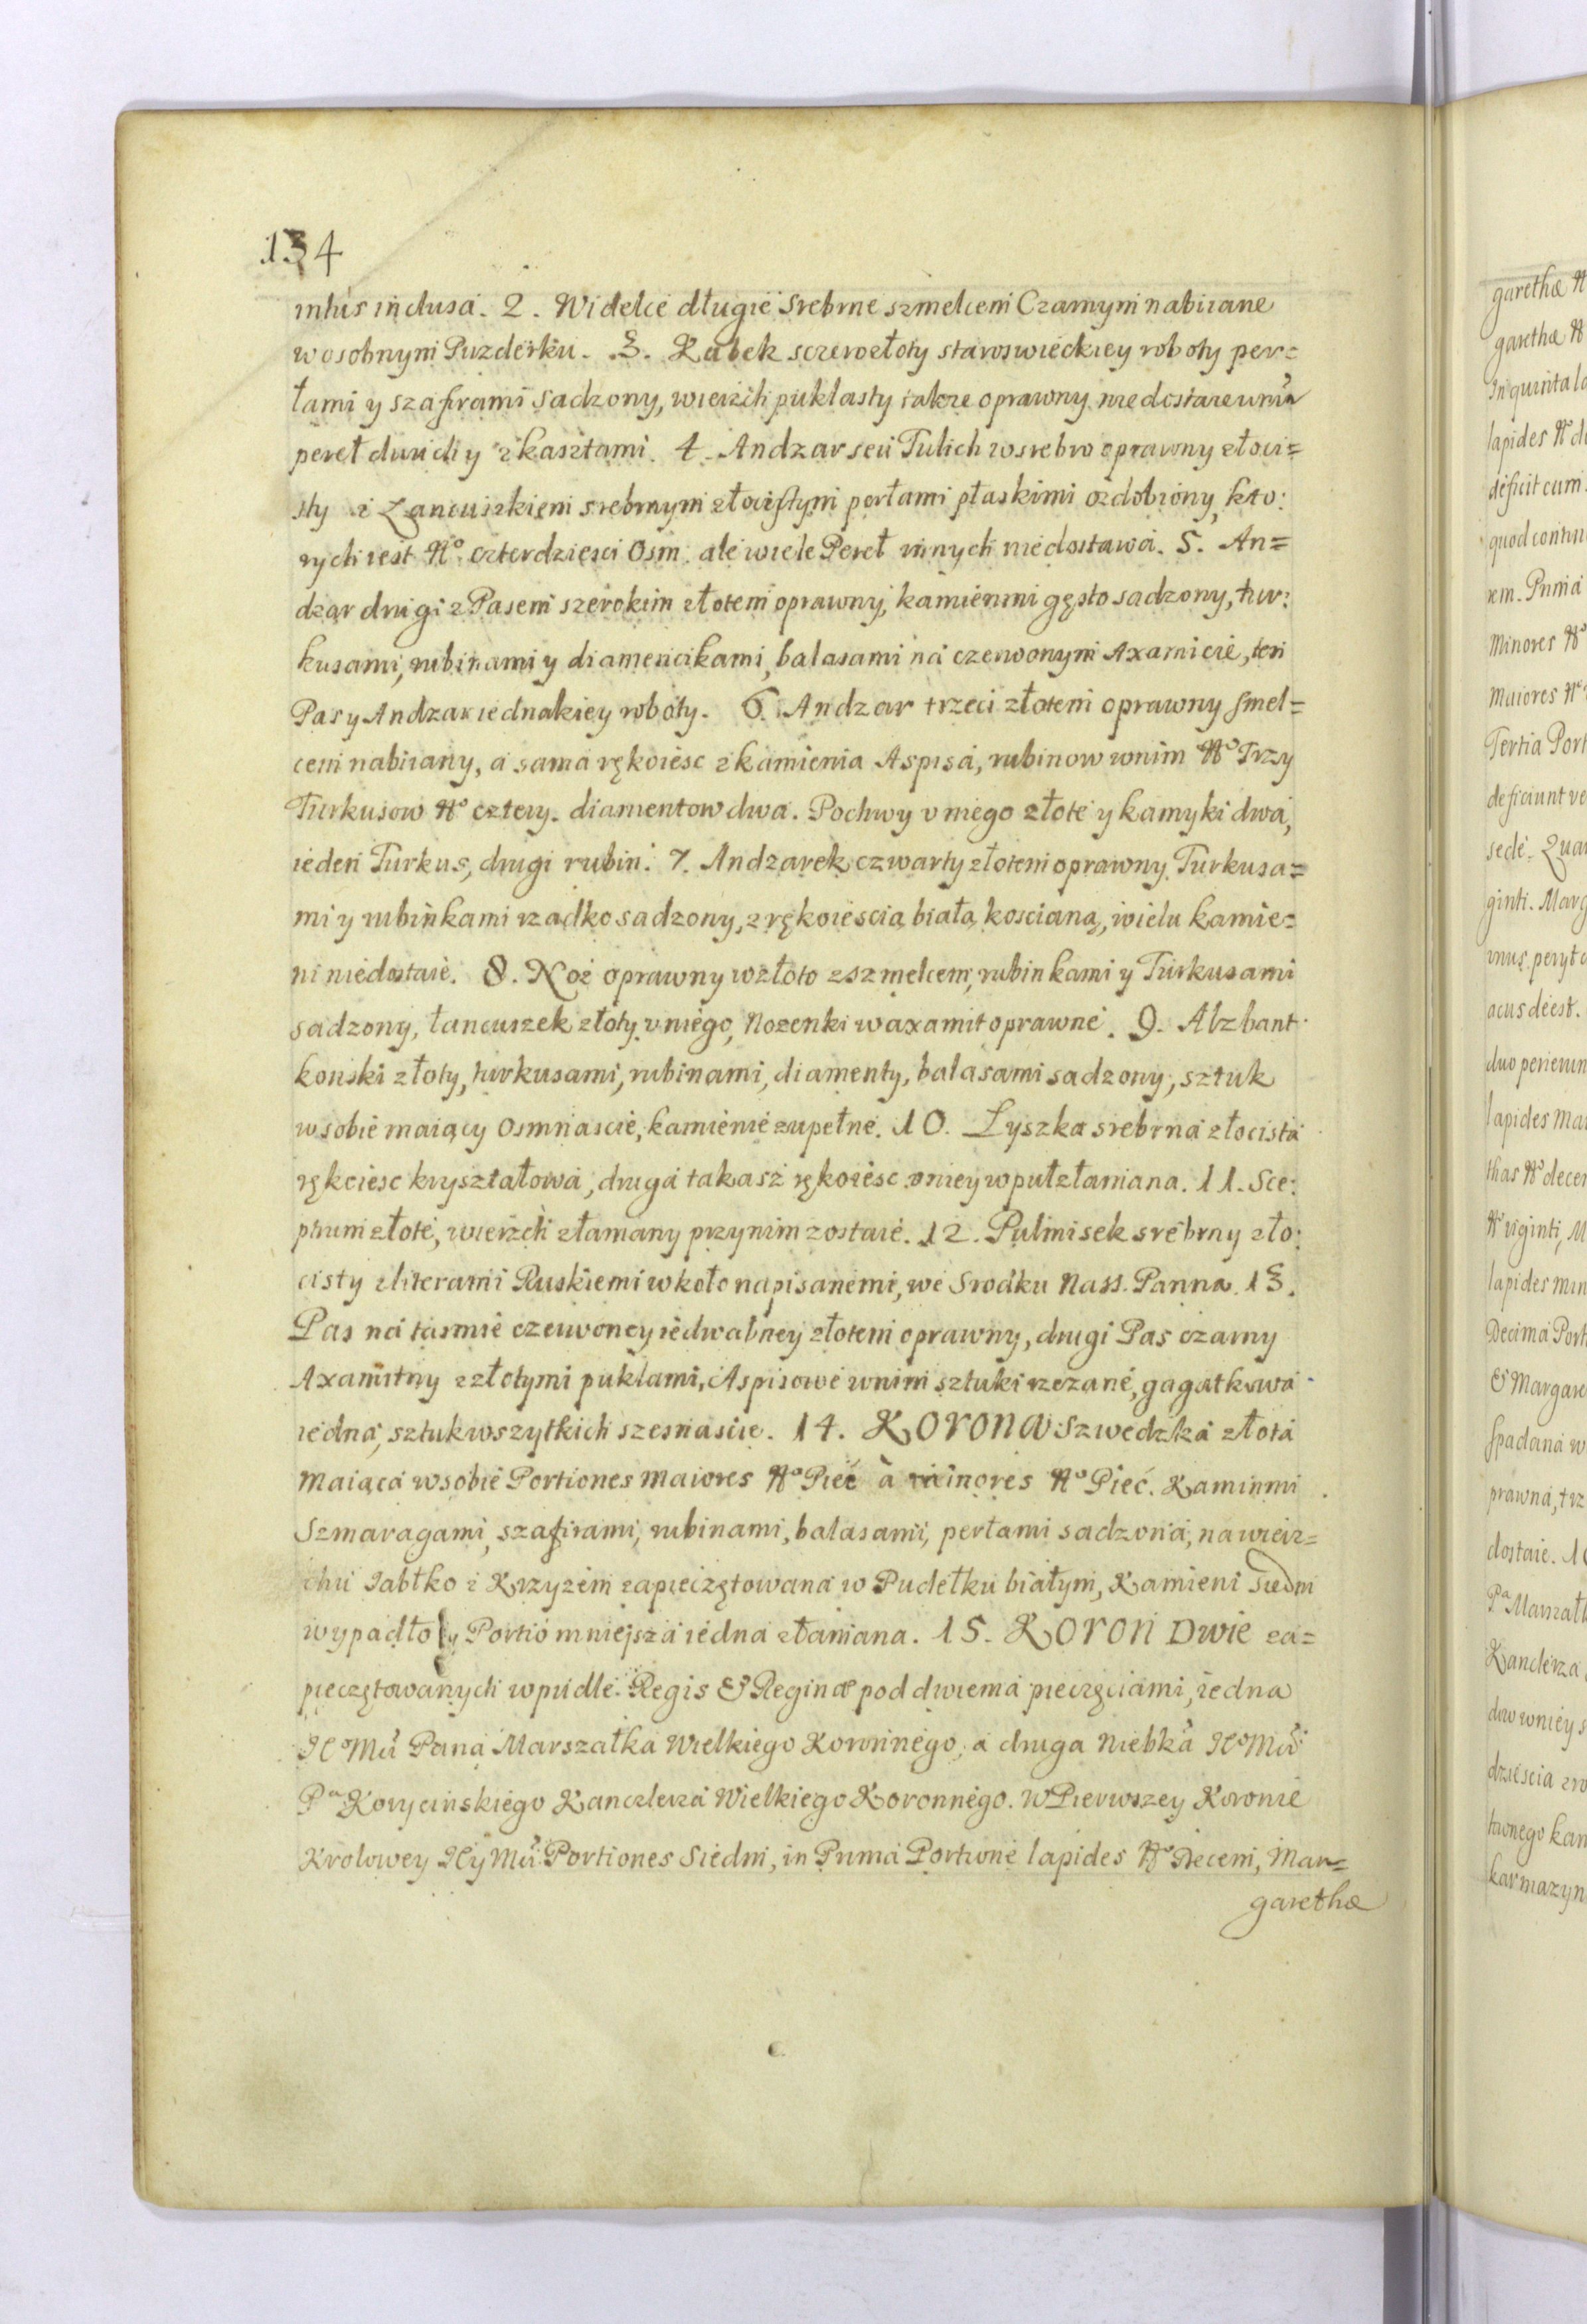 134
intus inclusa. 2. Widelce długie srebrne szmelcem Czarnym nabiiane
w osobnym Puzderku. 3. Kubek sczerozłoty staroswieckiey roboty per=
łami y szafirami sadzony, wierzch puklasty także oprawny, niedostaie umũ
pereł dwuch y z kasztami. 4. Andzar seu Tulich w srebro oprawny złoci=
sty z Łancuszkiem srebrnym złocistym perłami płaskimi ozdobiony, kto:
rych iest No czterdziesci Osm. ale wiele Pereł innych niedostawa. 5. An=
dzar drugi z Pasem szerokim złotem oprawny, kamienmi gęsto sadzony, tur:
kusami, rubinami y diamencikami, balasami na czerwonym Axamicie, ten
Pas y Andzar iednakiey roboty. 6. Andzar trzeci złotem oprawny smel=
cem nabiiany, a sama rękoiesc z kamienia Aspisa, rubinow w nim No Trzy
Turkusow No cztery. diamentow dwa. Pochwy v niego złote y kamyki dwa,
ieden Turkus, drugi rubin. 7. Andzarek czwarty złotem oprawny Turkusa=
mi y rubinkami rzadko sadzony, z rękoiescią białą koscianą, wielu kamie=
ni niedostaie. 8. Noż oprawny w złoto z szmelcem, rubinkami y Turkusami
sadzony, łancuszek złoty v niego, Nozenki w axamit oprawne. 9. Alzbant
konski złoty, turkusami, rubinami, diamenty, balasami sadzony, sztuk
w sobie maiący Osmnascie, kamienie zupełne. 10. Łyszka srebrna złocista
rękoiesc kryształowa, druga takasz rękoiesc v niey w puł złamana. 11. Sce:
ptrum złote, wierzch złamany przy nim zostaie. 12. Pulmisek srebrny zło:
cisty z literami Ruskiemi w koło napisanemi, we Srodku Nass. Panna. 13.
Pas na tasmie czerwoney iedwabney złotem oprawny, drugi Pas czarny
Axamitny z złotymi puklami, Aspisowe w nim sztuki rzezane, gagatkowa
iedna, sztuk wszytkich szesnascie. 14. KORONA Szwedzka złota
maiąca w sobie Portiones maiores No Pięć à minores No Pięć. Kaminmi
Szmaragami, szafirami, rubinami, balasami, perłami sadzona, na wierz=
chu Jabłko z Krzyżem zapieczętowana w Pudełku białym, Kamieni Siedm
wypadło y Portio mnieysza iedna złamana. 15. KORON Dwie za=
pieczętowanych w pudle Regis & Reginæ pod dwiema pieczęciami, iedna
JEo Mũ Pana Marszałka Wielkiego Koronnego, a druga Niebka JEo Mũ
Pa Korycinskiego Kanclerza Wielkiego Koronnego. W Pierwszey Koronie
Krolowey JEy Mũ Portiones Siedm, in Prima Portione lapides No Decem, Mar=
garethæ